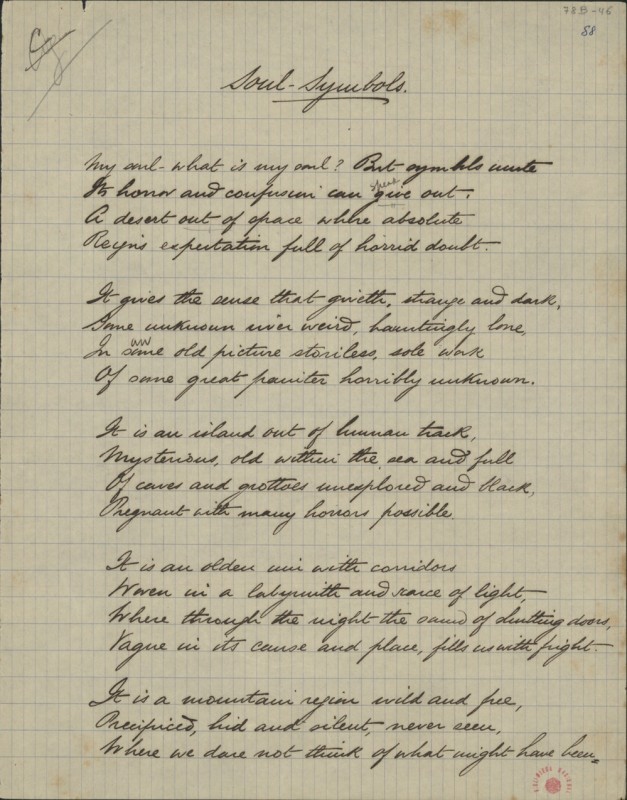 78B-46
88
Soul-Symbols.
My soul - what is my soul? But symbols mute
Its horror and confusion can speak give out:
A desert out of space where absolute
Reigns expectation full of horrid doubt.
It gives the sense that giveth, strange and dark,
Some unknown river weird, hauntingly lone,
In some old picture storiless, sole work
Of some great painter horribly unknown.
It is an island out of human track,
Mysterious, old within the sea and full
Of caves and grottoes unexplored and black,
Pregnant with many horrors possible.
It is an olden inn with corridors
Woven in a labyrinth and scarce of light,
Where through the night the sound of shutting doors,
Vague in its cause and place, fills us with fright.
It is a mountain region wild and free,
Precipiced, hid and silent, never seen,
Where we dare not think of what might have been